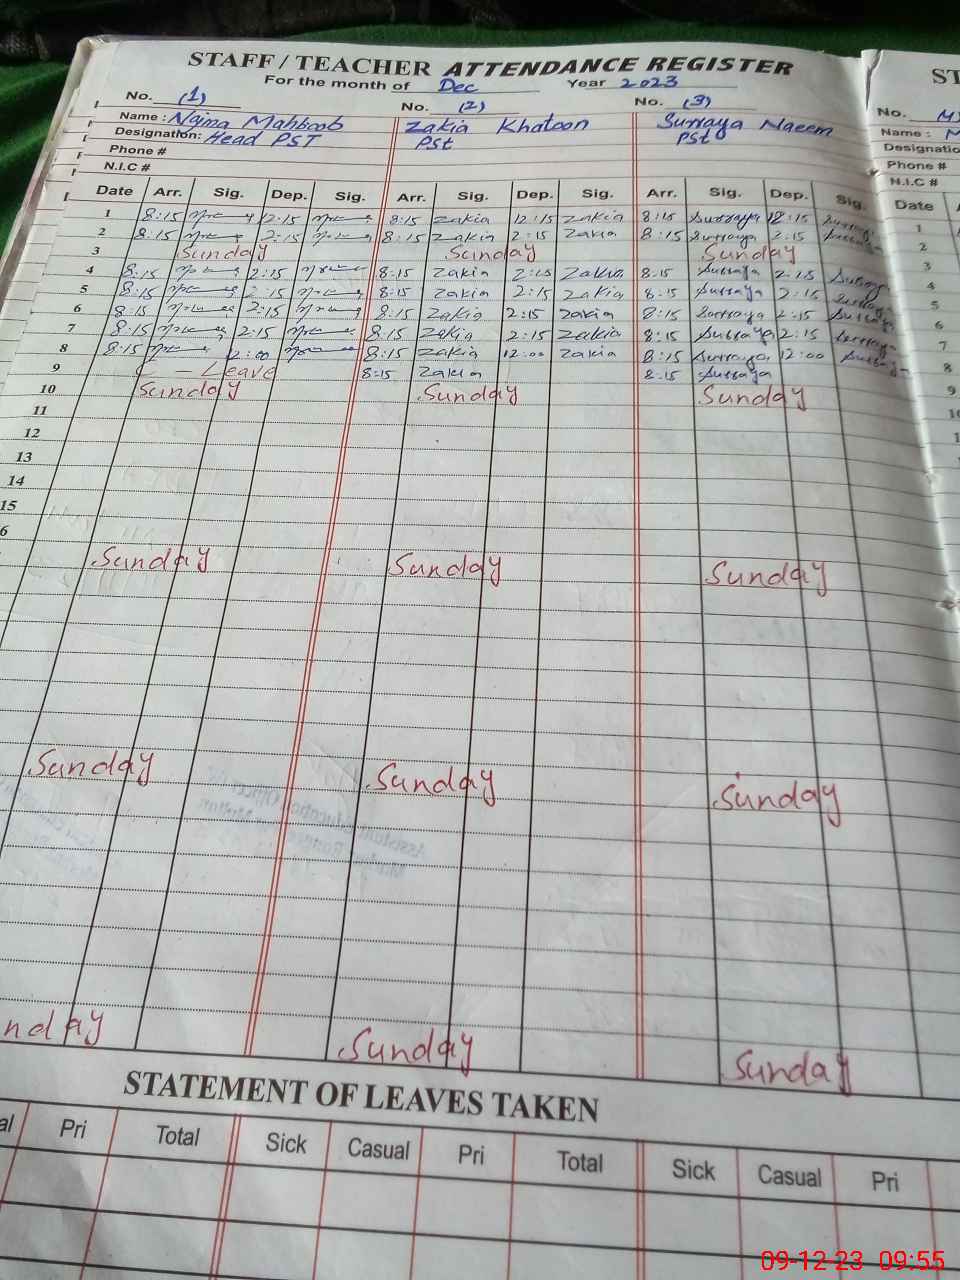 STAFF / TEACHER ATTENDANCE REGISTER
For the month of Dec Year 2023
No. (1) No. (2) No. (3)
Name : Najma Mahboob Zakia Khatoon Surraya Naeem
Designation: Head PST PSt PSt
Phone #
N.I.C #
Date Arr. Sig. Dep. Sig. Arr. Sig. Dep. Sig. Arr. Sig. Dep. Sig.
1 8:15 12:15 8:15 Zakia 12:15 Zakia 8:15 Surraya 12:15 Surraya
2 8:15 2:15 8:15 Zakia 2:15 Zakia 8:15 Surraya 2:15 Surraya
3 Sunday Sunday Sunday
4 8:15 2:15 8:15 Zakia 2:15 Zakia 8:15 Surraya 2:15 Surraya
5 8:15 2:15 8:15 Zakia 2:15 Zakia 8:15 Surraya 2:15 Surraya
6 8:15 2:15 8:15 Zakia 2:15 Zakia 8:15 Surraya 2:15 Surraya
7 8:15 2:15 8:15 Zakia 2:15 Zakia 8:15 Surraya 2:15 Surraya
8 8:15 12:00 8:15 Zakia 12:00 Zakia 8:15 Surraya 12:00 Surraya
9 C Leave 8:15 Zakia 8:15 Surraya
10 Sunday Sunday Sunday
11
12
13
14
15
6
Sunday Sunday Sunday
Sunday Sunday Sunday
nday Sunday Sunday
STATEMENT OF LEAVES TAKEN
al Pri Total Sick Casual Pri Total Sick Casual Pri
ST
No.
Name :
Designatio
Phone #
N.I.C #
Date
1
2
3
4
5
6
7
8
9
10
1
09-12-23 09:55